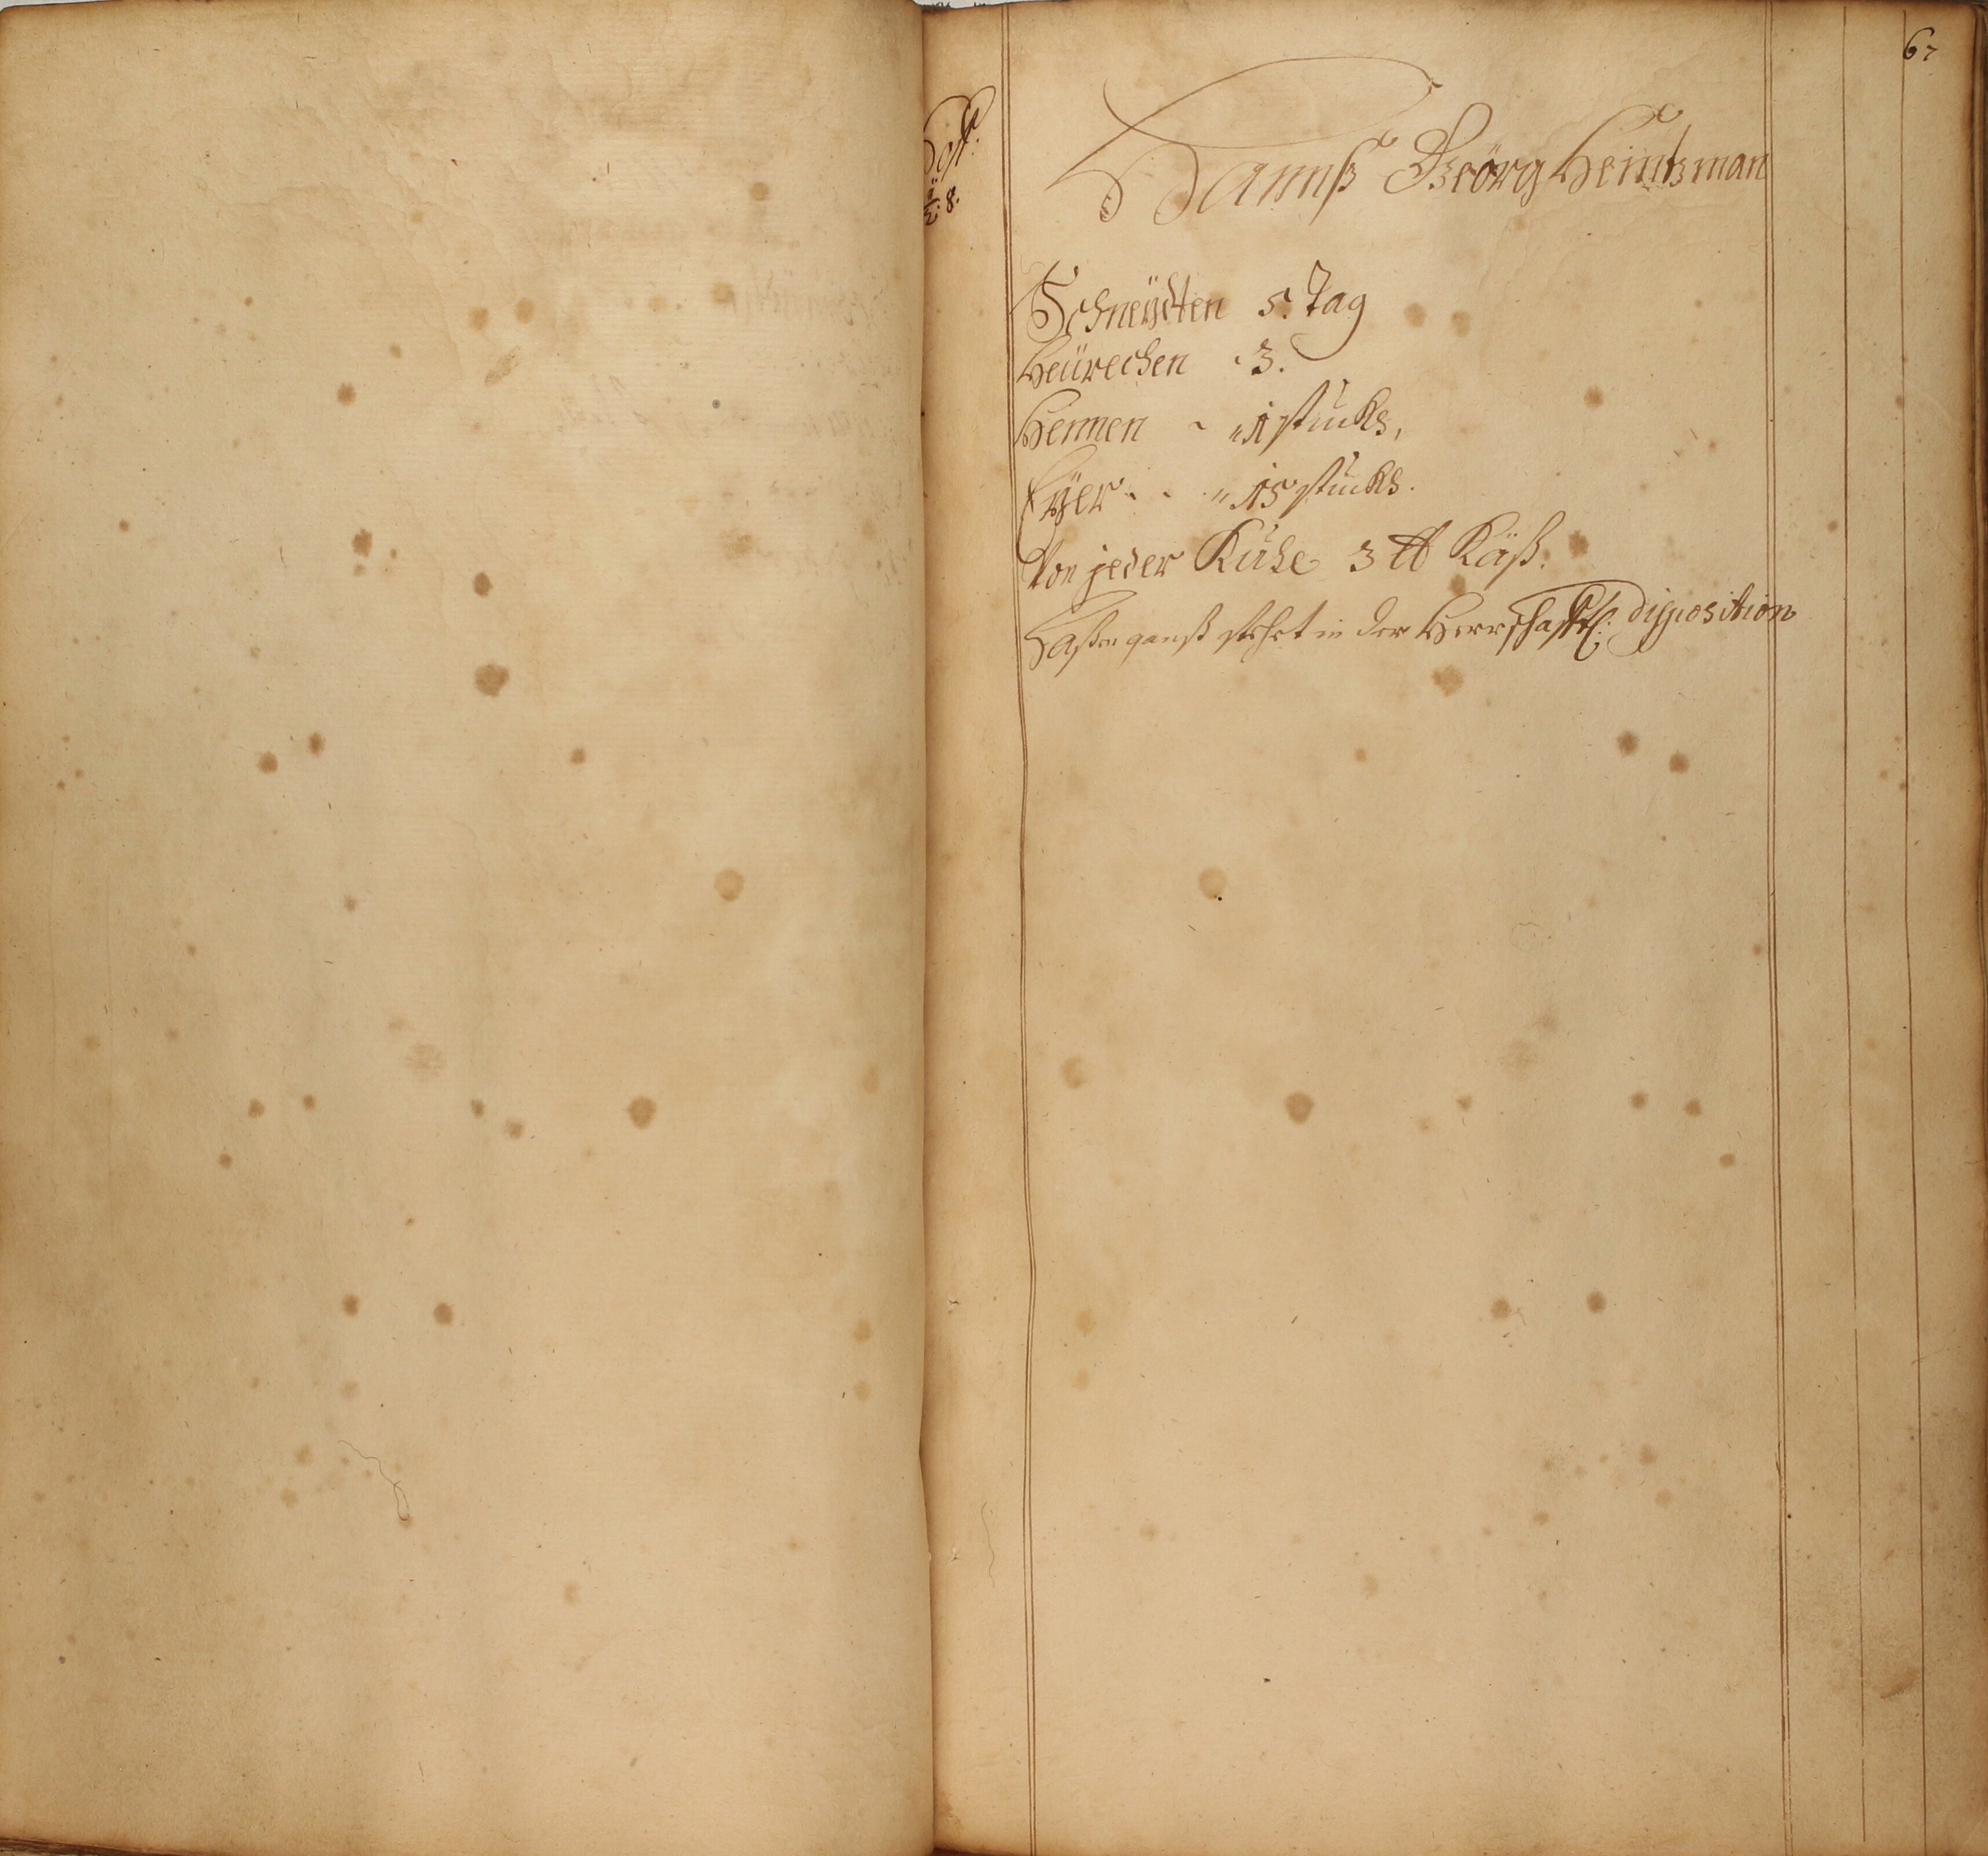 67
Hoff:
½. 8.
Hannß Georg Heintzman
Schneydten 5. Tag
Heürechen 3.
Hennen „1 stückh,
Eÿer „15 stückh.
Von jeder Kühe 3 ℔ Käß.
stehet in der Herrschafftl: disposition